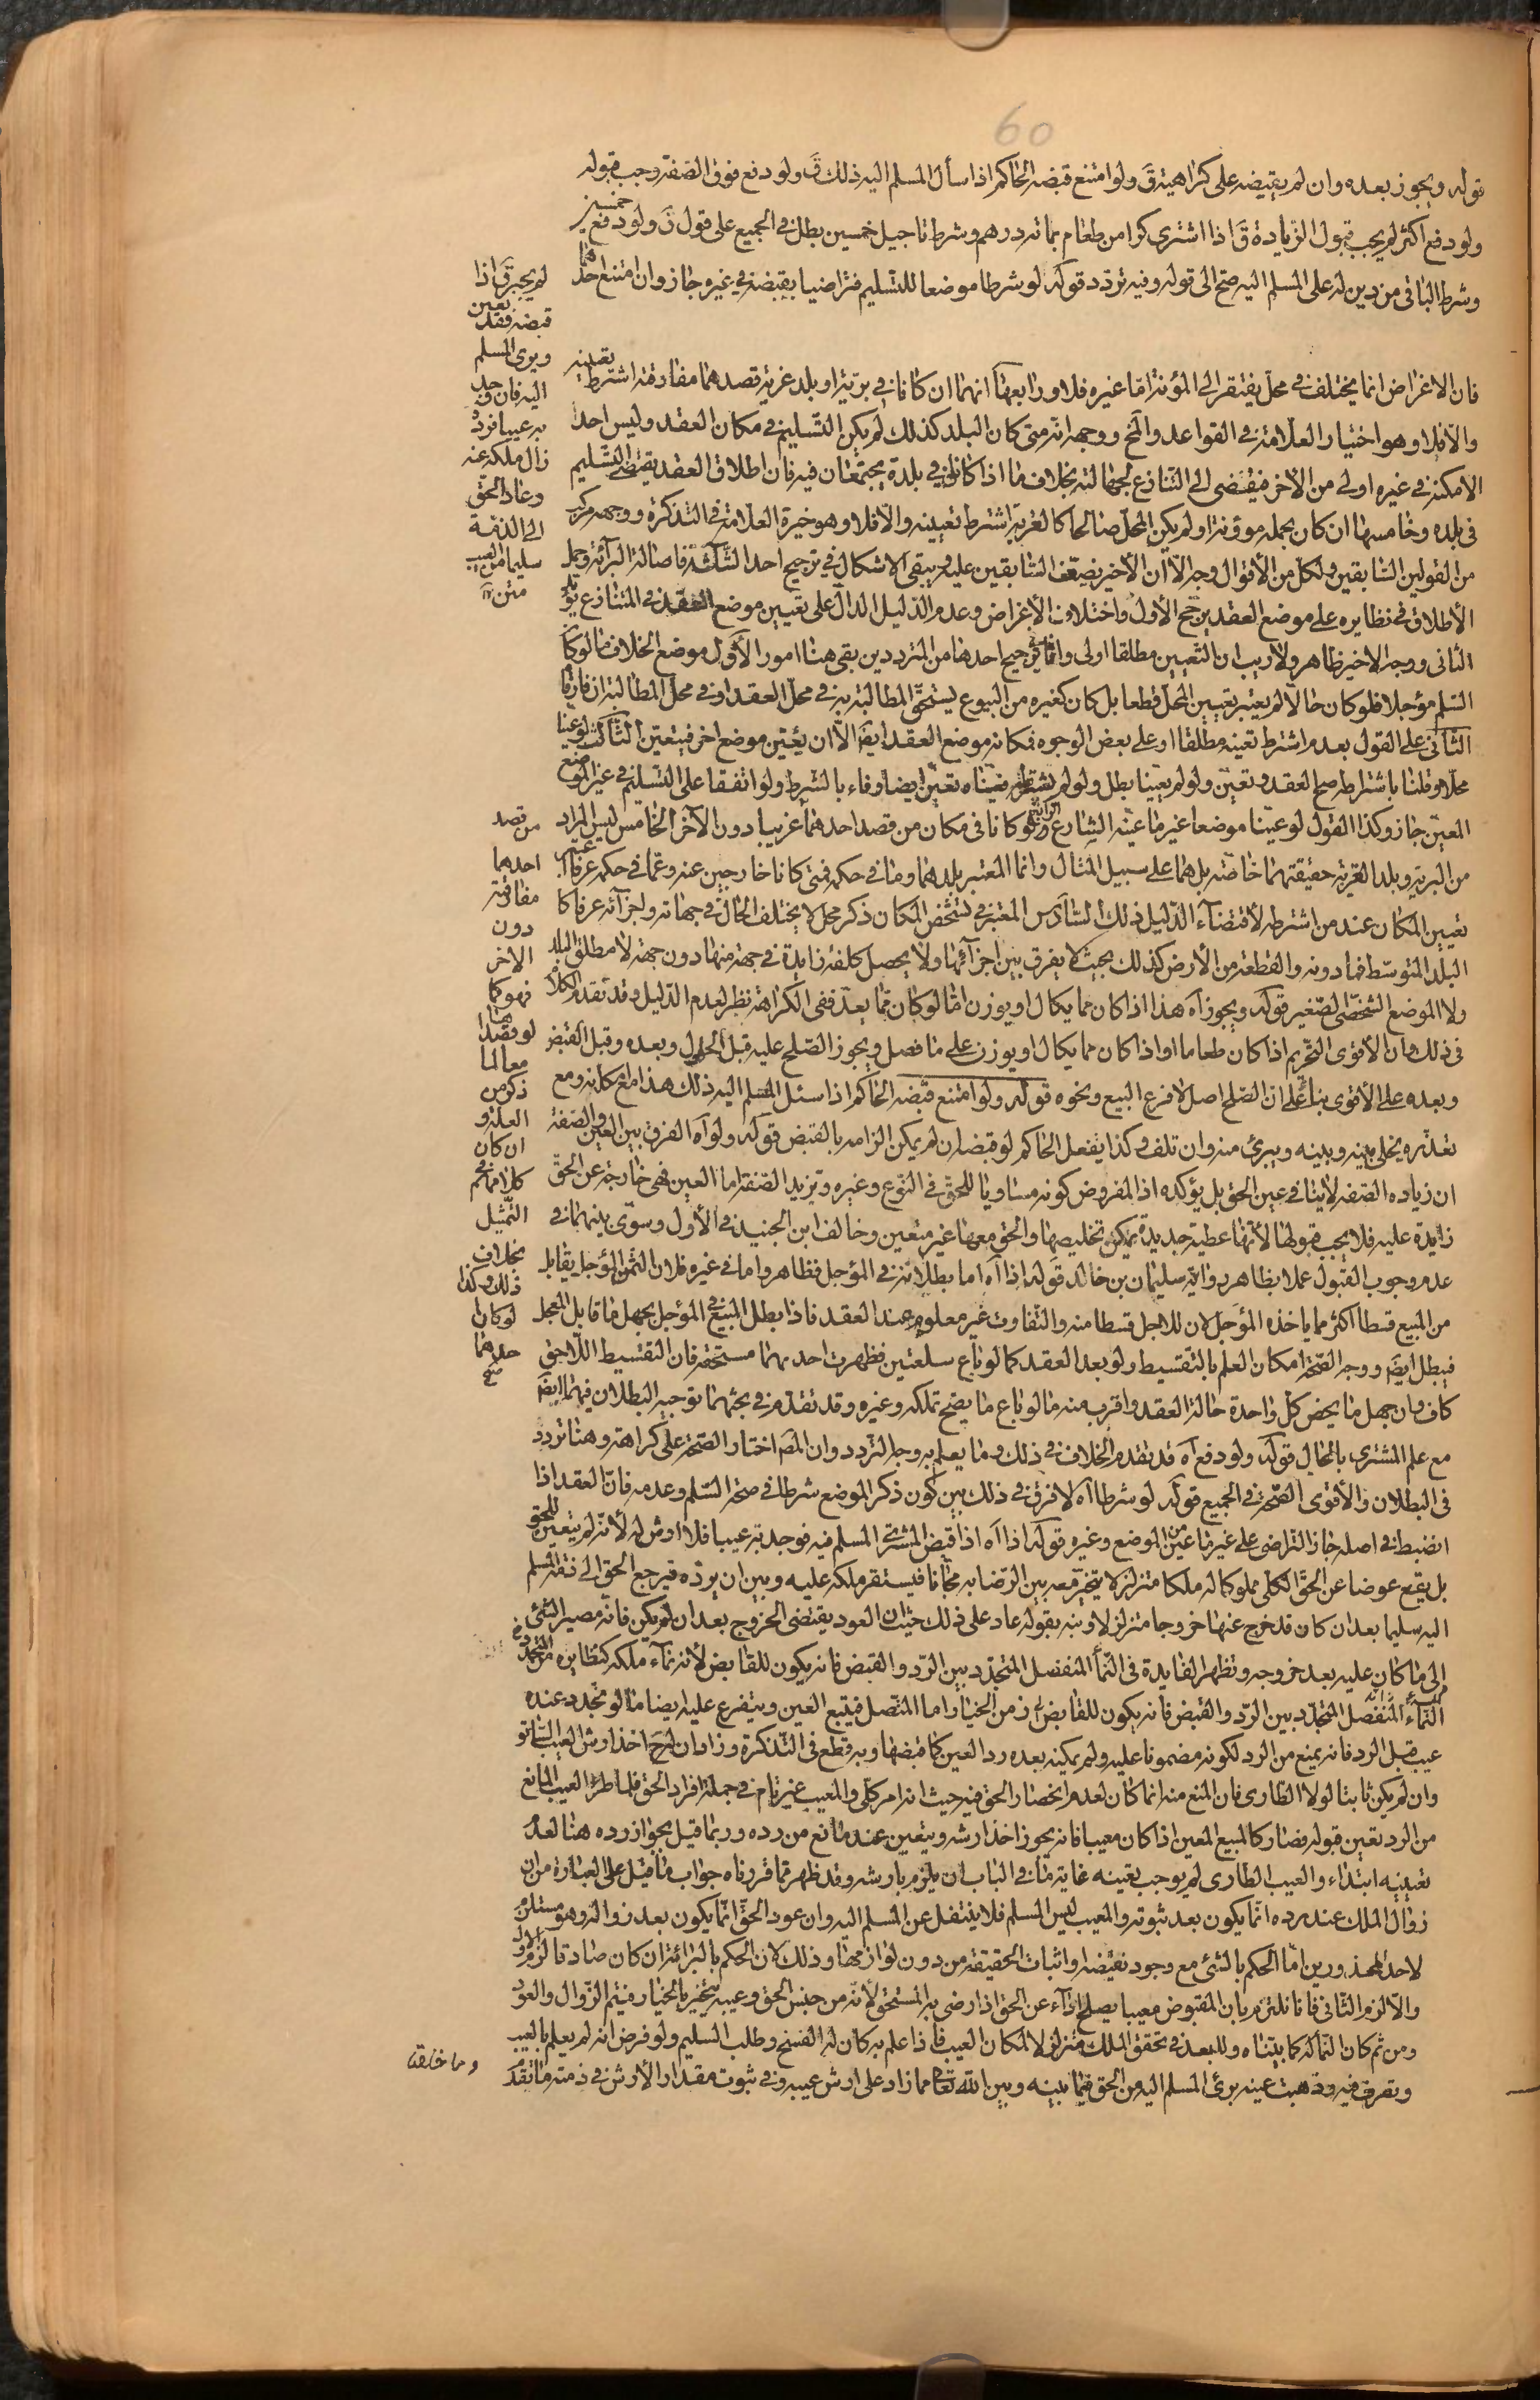 60
قوله ويجوز بعده وان لم يقبضه على كراهية قَ ولو امتنع قبضه الحاكم اذا سأل المسلم اليه ذلك قَ ولو دفع فوق الصفة وجب قبوله
ولو دفع اكثر لم يجب قبول الزيادة قَ اذا اشترى كرا من طعام بمائة درهم وشرط تاجيل خمسين بطل في الجميع على قول قَ ولو دفع خمسين
وشرط الباقى من دين له على المسلم اليه صح الى قوله وفيه تردد قوله لو شرطا موضعا للتسليم فتراضيا بقبضه في غيره جاز وان امتنع احدهما
لم يجبر قَ اذا
تعين
قبضه فقد
ويرى المسلم
اليه فان وجد
به عيبا فرده
زال ملكه عنه
وعاد الحق
الى الذمة
سليما من العيب
متن
فان الاغراض انما يختلف في محل يفتقر الى المؤنة امّا غيره فلا ورابعها انهما ان كانا في بريّة او بلد غربة قصدهما مفارقته اشترط تعيينه
والّا فلا وهو اختيار العلامة في القواعد والخ ووجهه انه متى كان البلد كذلك لم يكن التسليم في مكان العقد وليس احد
الامكنة في غيره اولى من الآخر فيفضى الى التنازع لجهالته بخلاف ما اذا كانا في بلدة يجتمعان فيه فان اطلاق العقد يقتضى التسليم
في بلده وخامسها ان كان بحمله مؤونة او لم يكن المحل صالحا كالغربة اشترط تعيينه والّا فلا وهو خيرة العلامة في التذكرة ووجهه مركب
من القولين السابقين ولكل من الأقوال وجه الّا ان الأخير يضعّف السابقين عليه ويبقى الاشكال في ترجيح احد الثلثة فاصالة البرائة وحمل
الأطلاق في نظايره على موضع العقد يرجّح الأول واختلاف الأغراض وعدم الدليل الدالّ على تعيين موضع العقد في المتنازع يؤيد
الثانى ووجه الاخير ظاهر ولا ريب ان التعيين مطلقا اولى وانما في ترجيح احدها من المترددين بقى هنا امور الأوّل موضع الخلاف ما لو كان
السّلم مؤجلا فلو كان حالّا لم يعتبر تعيين المحل قطعا بل كان كغيره من البيوع يستحق المطالبة به في محل العقد او في محل المطالبة ان فارقا
الثانى على القول بعدم اشتراط تعينه مطلقا او على بعض الوجوه فمكانه موضع العقد ايضَ الّا ان يعيّن موضع اخر فيتعيّن الثالث لو عينا
محلا وقلنا باشتراطه صح العقد وتعيّن ولو لم يعيّنا بطل ولو لم نشترطه فعيّناه تعيّن ايضا وفاء بالشرط ولو اتفقا على التسليم في غير الموضع
المعيّن جاز وكذا القول لو عيّنا موضعا غير ما عيّنه الشارع الرابع لو كانا في مكان من قصد احدهما غريبا دون الآخر الخامس ليس المراد
من البرية وبلد الغربة حقيقتهما خاصّة بل هما على سبيل المثال وانما المعتبر بلدهما وما في حكمه فمتى كانا خارجين عنه وعمّا في حكمه عرفا اعتبر
تعيين المكان عند من اشترطه لأقتضاء الدليل ذلك السادس المعتبر في تشخّص المكان ذكر محل لا يختلف الحال في جهاته ولجزائه عرفا كا
البلد المتوسّط فما دونه والقطعة من الأرض كذلك بحيث لا يفرق بين اجزائها ولا يحصل كلفة زايدة في جهة منها دون جهة لا مطلق البلد
ولا الموضع الشخصى الصغير قوله ويجوز آه هذا اذا كان مما يكال او يوزن امّا لو كان ممّا يعدّ ففى الكراهة نظر لعدم الدّليل وقد تقدم الكلام
في ذلك وان الأقوى التحريم اذا كان طعاما او اذا كان مما يكال او يوزن على ما فصل ويجوز الصّلح عليه قبل الحلول وبعده وقبل القبض
وبعده على الأقوى بناءً على انّ الصّلح اصل لا فرع البيع ونحوه قوله ولو امتنع قبضه الحاكم اذا سئل المسلم اليه ذلك هذا مع مكانه ومع
تعذّره يخلى بينه وبينه ويبرئ منه وان تلف وكذا يفعل الحاكم لو قبضه ان لم يمكن الزامه بالقبض قوله ولو آه الفرق بين العين والصفة
ان زياده الصّفه لا ينافى عين الحق بل يؤكده اذ المفروض كونه مساويا للحقّ في النّوع وغيره وتزيد الصّفة امّا العين فهى خارجة عن الحقّ
زايدة عليه فلا يجب قبولها لأنّها عطية جديدة يمكن تخليصها والحق معها غير متعين وخالف ابن الجنيد في الأول وسوّى بينهما في
عدم وجوب القبول عملا بظاهر رواية سليمان بن خالد قوله اذا آه اما بطلانه في المؤجل فظاهر واما في غيره فلان الثمن المؤجل يقابل
من المبيع قسطا اكثر مما ياخذه المؤجل لان للاجل قسطا منه والتفاوت غير معلوم عند العقد فاذا بطل البيع في المؤجل يجهل ما قابل المعجل
فيبطل ايضَ ووجه الصّحة امكان العلم بالتّقسيط ولو بعد العقد كما لو باع سلعتين فظهرت احديهما مستحقة فان التقسيط اللّاحق
كاف وان جهل ما يخص كل واحدة حالة العقد واقرب منه ما لو باع ما يصح تملكه وغيره وقد تقدّم في بحثهما توجيه البطلان فيهما ايضَ
مع علم المشترى بالحال قوله ولو دفع آه قد تقدم الخلاف في ذلك وما يعلم به وجه التّردد وان المصَ اختار الصّحة على كراهة وهنا تردد
في البطلان والأقوى الصّحة في الجميع قوله لو شرطا آه لا فرق في ذلك بين كون ذكر الموضع شرطا في صحة السّلم وعدمه فانّ العقد اذا
انضبط في اصله جاز التراضى على غير ما عيّن من الموضع وغيره قوله اذا آه اذا قبض المشترى المسلم فيه فوجد به عيبا فلا ارش له لأنّه لم يتعيّن للحق
بل يقع عوضا عن الحقّ الكلّى مملوكا له ملكا متزلزلا يتخيّر معه بين الرّضا به مجّانا فيستقر ملكه عليه وبين ان يردّه فيرجع الحق الى ذمة المسلم
اليه سليما بعد ان كان قد خرج عنها خروجا متزلزلا ونبه بقوله عاد على ذلك حيث ان العود يقتضى الخروج بعد ان لم يكن فانّه مصير الشّئ
الى ما كان عليه بعد خروجه وتظهر الفايدة في النّماء المنفصل المتجدّد بين الرّد والقبض فانه يكون للقابض لأنه نماء ملكه كنظايره من المتجدد في
النّماء المنفصل المتجدّد بين الردّ والقبض فانه يكون للقابض في زمن الخيار واما المتّصل فيتبع العين ويتفرع عليه ايضا ما لو تجدد عنده
عيب قبل الرد فانه يمنع من الرد لكونه مضمونا عليه ولم يمكنه بعده رد العين كما قبضها وبه قطع في التّذكرة وزاد ان له حَ اخذ ارش العيب السّابق
وان لم يكن ثابتا لولا الطارى فان المنع منه انما كان لعدم انحصار الحق فيه حيث انه امر كلّى والمعيب غير تام في جملة افراد الحق فلما طرأ العيب المانع
من الرد تعين قبوله فصار كالمبيع المعين اذا كان معيبا فانه يجوز اخذ ارشه ويتعين عند مانع من رده وربما قيل بجواز رده هنا لعدم
تعيينه ابتداء والعيب الطارى لم يوجب تعينه غاية ما في الباب ان يلزم بارشه وقد ظهر ممّا قررناه جواب ما قيل على العبارة من ان
زوال الملك عند رده انّما يكون بعد ثبوته والمعيب ليس المسلم فلا ينتقل عن المسلم اليه وان عود الحقّ انّما يكون بعد زواله وهو مستلزم
لاحد المحذورين امّا الحكم بالشّئ مع وجود نقيضه او اثبات الحقيقة من دون لوازمها وذلك لان الحكم بالبرائة ان كان صادقا لزم الاول
والّا لزم الثانى فانا نلتزم بان المقبوض معيبا يصلح اداء عن الحق اذا رضى به المستحق لأنّه من جنس الحق وعيبه يتخيّر بالخيار فيتم الزّوال والعود
ومن ثم كان النّما له كما بيّناه وللبعد في تحقق الملك متزلزلا لامكان العيب فاذا علم به كان له الفسخ وطلب السليم ولو فرض انه لم يعلم بالعيب
وتصرف فيه وذهبت عينه برئ المسلم اليه من الحق فيما بينه وبين الله تعالى مما زاد على ارش عيبه وفي ثبوت مقدار الأرش في ذمته ما تقدم
من قصد
احدهما
مفارقته
دون
الاخر
فهو كما
لو قصدا
معا لما
ذكر من
العلة و
ان كان
كلامهم
التّمثيل
بخلاف
ذلك وكذا
لو كان
احدهما
صح
وما خلقنا